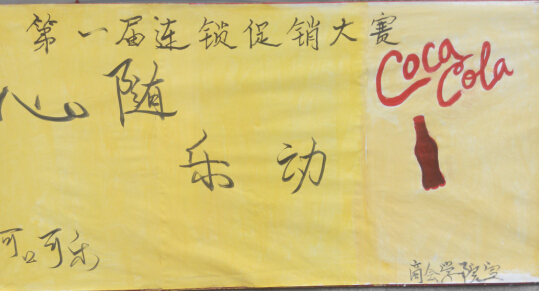 第一届连锁促销大赛
心随
乐动
可口可乐
Coca
Cola
商会学院宣